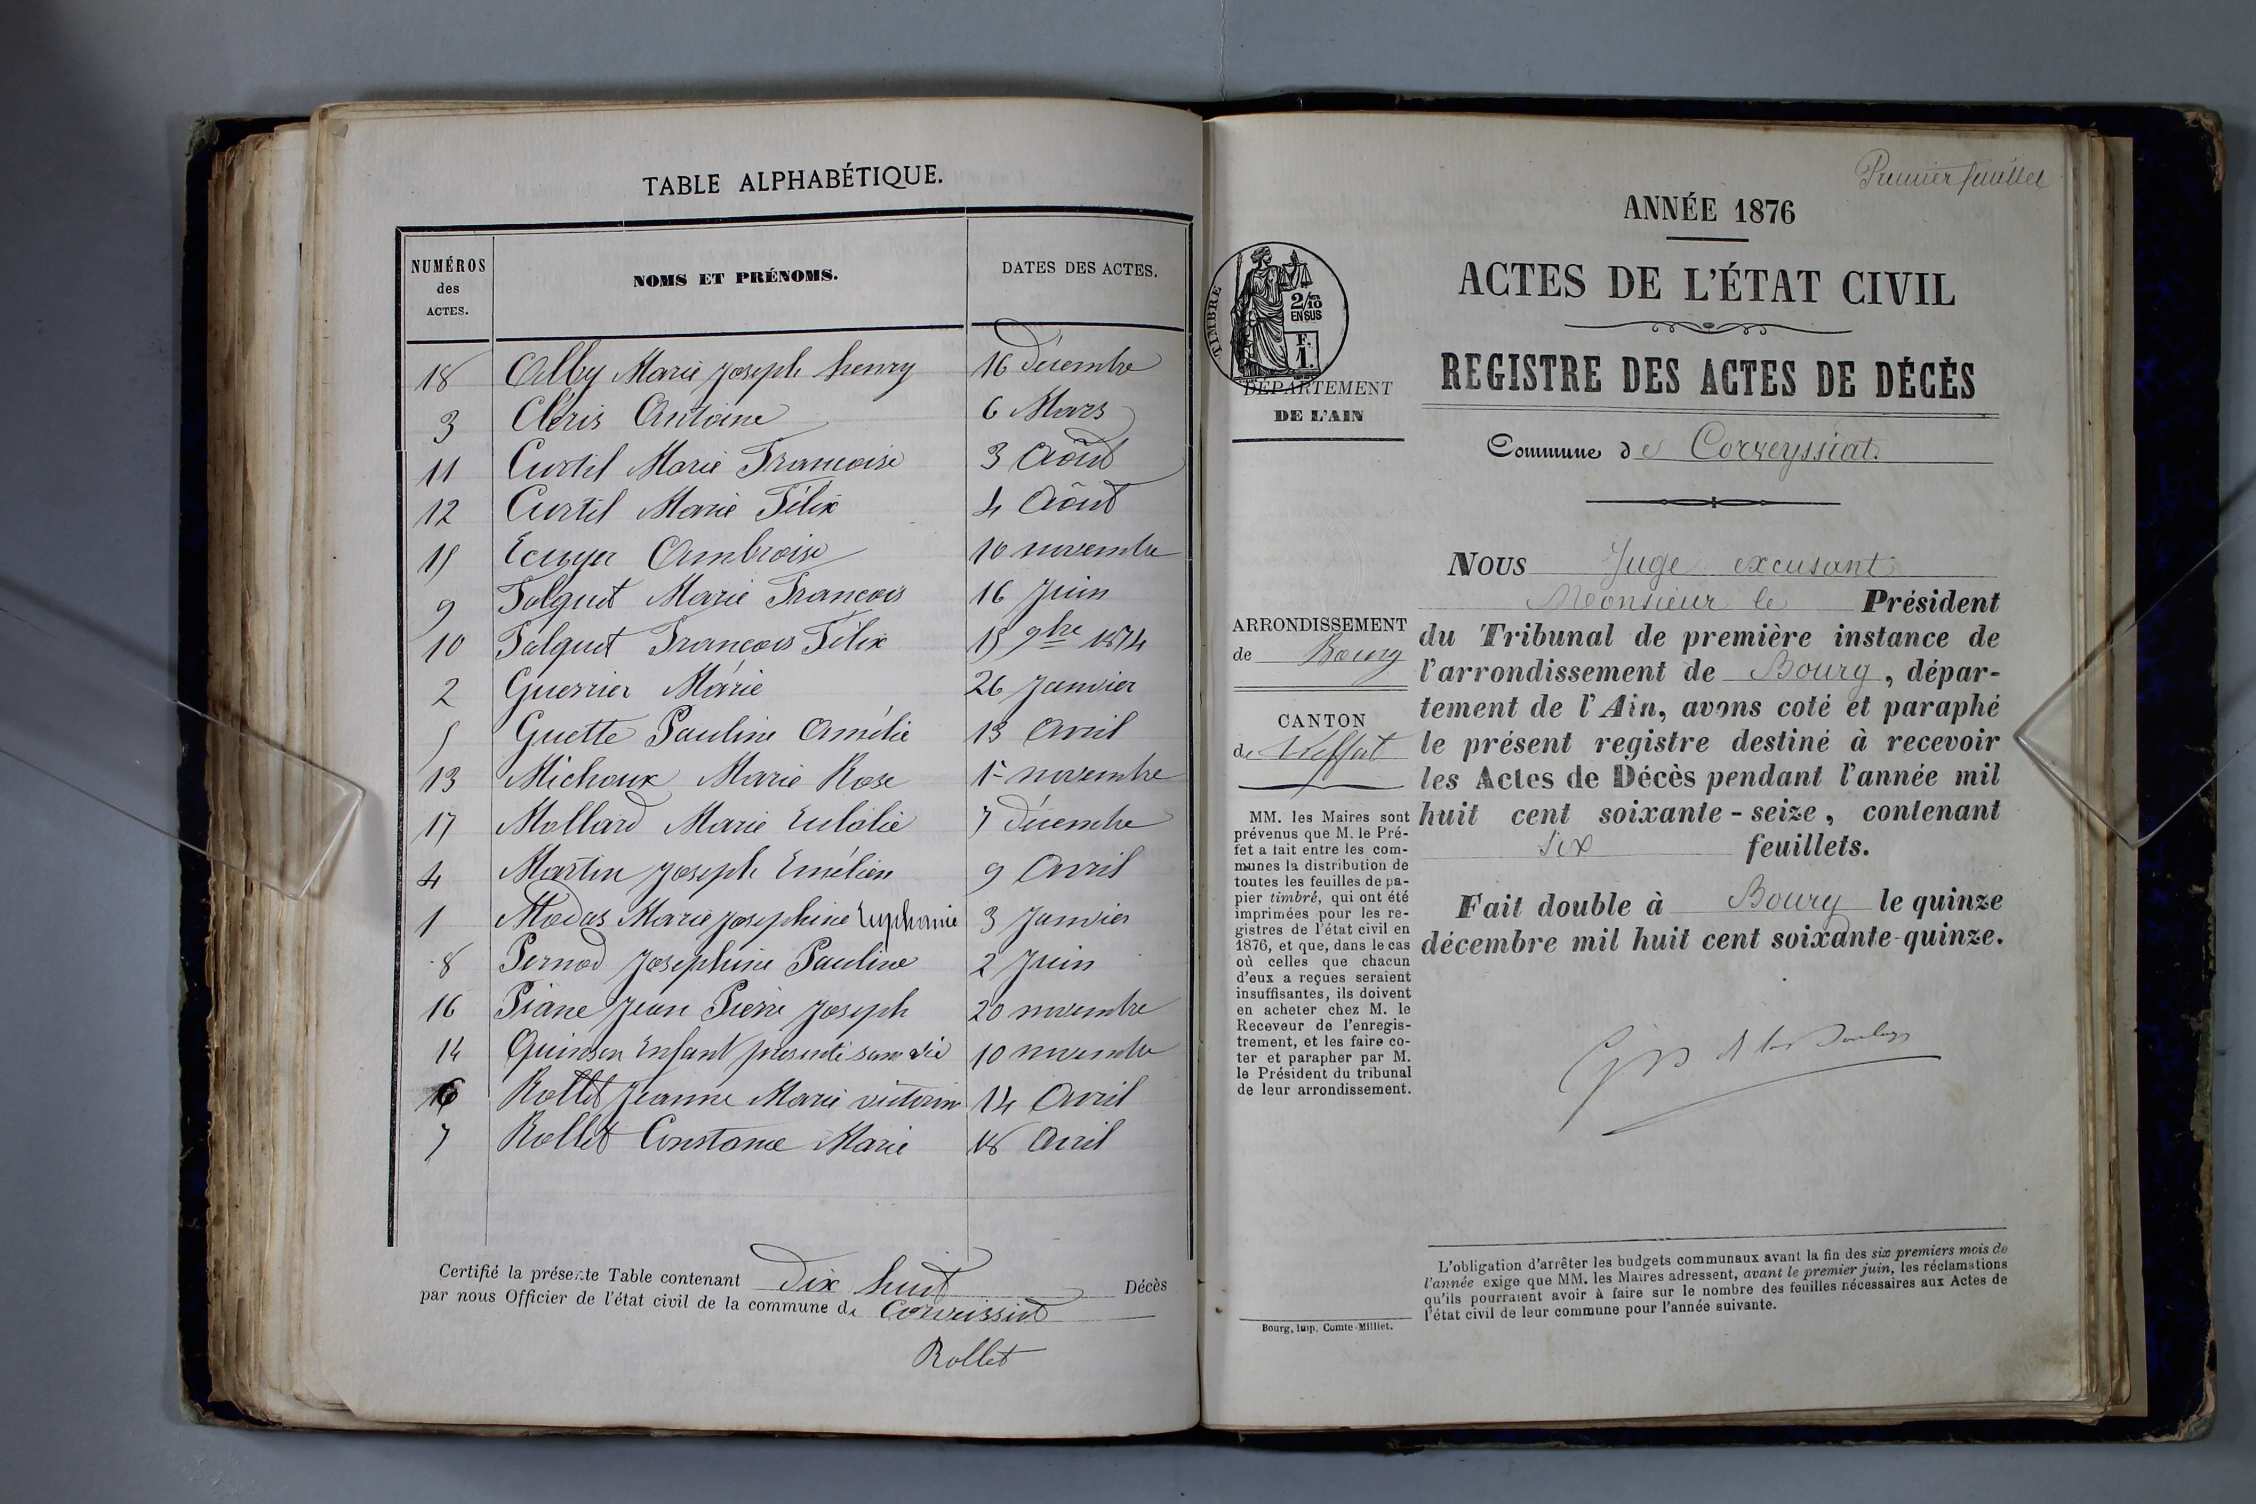 TABLE ALPHABÉTIQUE.
NUMÉROS des ACTES. NOMS ET PRÉNOMS. DATES DES ACTES.
18 Alby Marie Joseph henry 16 Décembre
3 Cléris Antoine 6 Mars
11 Curtil Marie Francoise 3 Aôut
12 Curtil Marie Félix 4 Aôut
15 Ecuyer Ambroise 10 novembre
9 Folquet Marie Francois 16 Juin
10 Folquet Francois Félix 15 9bre 1874
2 Guerrier Marie 26 Janvier
5 Guette Pauline Amélie 13 Avril
13 Michoux Marie Rose 1er novembre
17 Mollard Marie Eulalie 7 Décembre
4 Martin Joseph Emélien 9 Avril
1 Modas Marie Josephine Euphanie 3 Janvier
8 Pernod Josephine Pauline 2 Juin
16 Piane Jean Pierre Joseph 20 novembre
14 Quinson Enfant présenté sans vie 10 novembre
6 Rollet Jeanne Marie victorine 14 Avril
7 Rollet Constance Marie 18 Avril
Certifié la présente Table contenant Dix huit Décès
par nous Officier de l'état civil de la commune de Corveissiat
Rollet
Premier feuillet
ANNÉE 1876
ACTES DE L'ÉTAT CIVIL
REGISTRE DES ACTES DE DÉCÈS
TIMBRE
2/10 EN SUS
F. 1.
DÉPARTEMENT
DE L'AIN
Commune de Corveyssiat
ARRONDISSEMENT
de Bourg
CANTON
de Treffort
MM. les Maires sont
prévenus que M. le Pré-
fet a fait entre les com-
munes la distribution de
toutes les feuilles de pa-
pier timbré, qui ont été
imprimées pour les re-
gistres de l'état civil en
1876, et que, dans le cas
où celles que chacun
d'eux a reçues seraient
insuffisantes, ils doivent
en acheter chez M. le
Receveur de l'enregis-
trement, et les faire co-
ter et parapher par M.
le Président du tribunal
de leur arrondissement.
Bourg, Imp. Comte-Milliet.
Nous Juge excusant
Monsieur le Président
du Tribunal de première instance de
l'arrondissement de Bourg, dépar-
tement de l'Ain, avons coté et paraphé
le présent registre destiné à recevoir
les Actes de Décès pendant l'année mil
huit cent soixante-seize, contenant
six feuillets.
Fait double à Bourg le quinze
décembre mil huit cent soixante-quinze.
L'obligation d'arrêter les budgets communaux avant la fin des six premiers mois de
l'année exige que MM. les Maires adressent, avant le premier juin, les réclamations
qu'ils pourraient avoir à faire sur le nombre des feuilles nécessaires aux Actes de
l'état civil de leur commune pour l'année suivante.